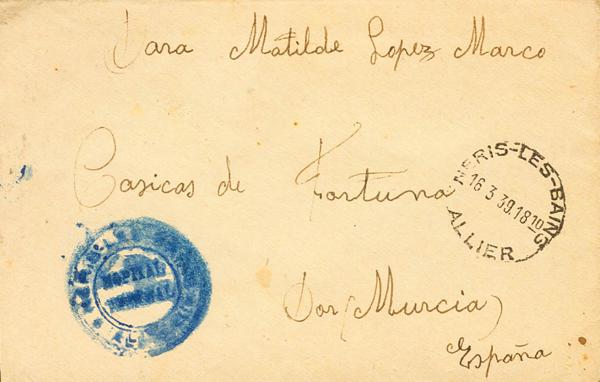 Para Matilde Lopez Marco
Casicas de Fortuna
Por (Murcia)
España
NERIS-LES-BAINS
16 3 39.18 10
ALLIER
HOPITAL